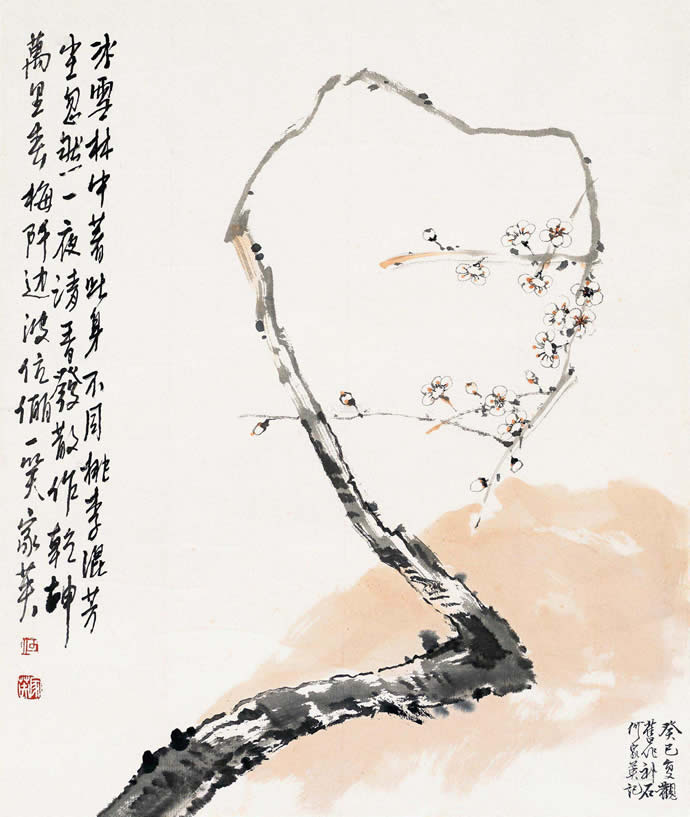 冰雪林中著此身不同桃李混芳
尘忽然一夜清香發散作乾坤
萬里春 梅阡边波伉俪一笑 家英
癸巳复觀
舊作补石
何家英記